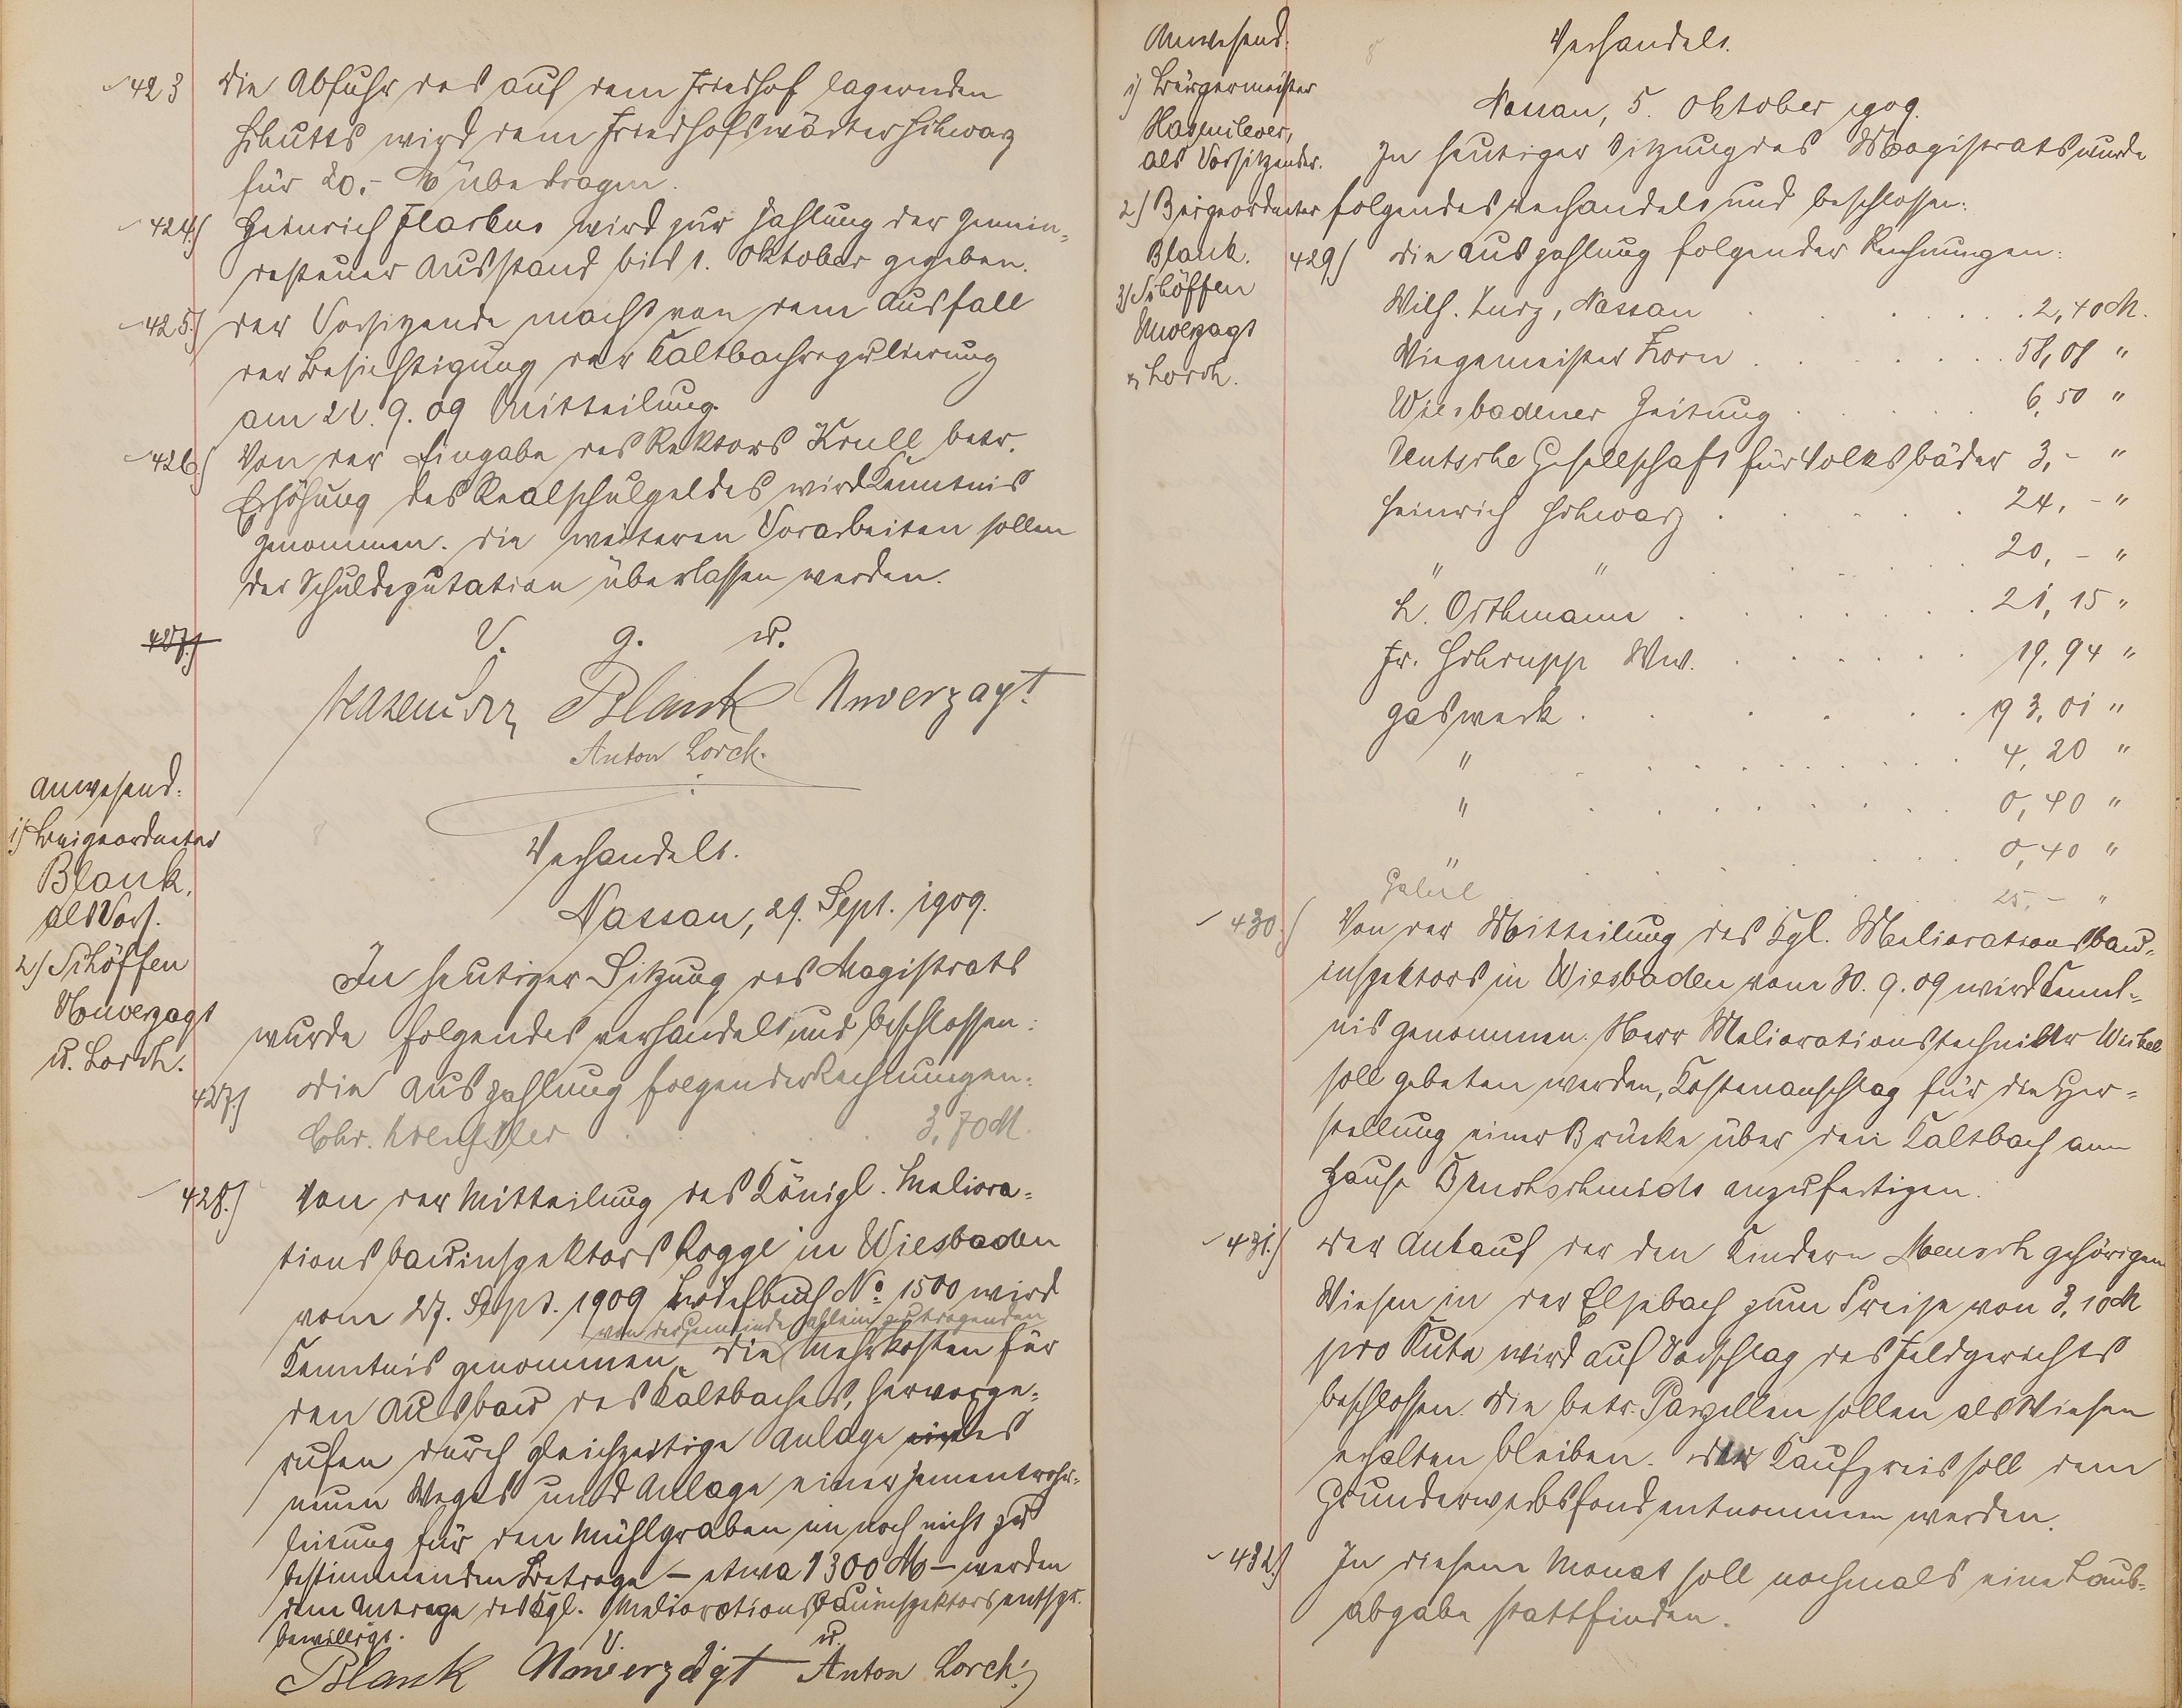 423 Die Abfuhr des auf dem Friedhof lagernden
Schutts wird dem Friedhofswärter Schwarz
für 20,- M übertragen.
424.) Heinrich wird zur Zahlung der Gemein-
desteuer Ausstand bis 1. Oktober gegeben.
425.) Der Vorsitzende macht von dem Ausfall
der Besichtigung der Kaltbachregulierung
am 22. 9. 09 Mitteilung.
426.) Von der Eingabe des Rektors Krull betr.
Erhöhung des Realschulgeldes wird Kenntnis
genommen. Die weiteren Vorarbeiten sollen
der Schuldeputation überlassen werden.
427.)
V. g. u.
Hasenclever Blank Unverzagt
Anton Lorch.
Anwesend:
1) Beigeordneter
Blank,
als Vors.
2) Schöffen
Unverzagt
u. Lorch.
Verhandelt.
Nassau, 29. Sept. 1909.
In heutiger Sitzung des Magistrats
wurde folgendes verhandelt und beschlossen:
427.) Die Auszahlung folgender Rechnungen:
Chr. 3,70 M.
428.) Von der Mitteilung des Königl. Meliora-
tionsbauinspektors Rogge in Wiesbaden
vom 27. Sept. 1909 Briefbuch No 1500 wird
von der Gemeinde allein zu tragenden
Kenntnis genommen. Die Mehrkosten für
den Ausbau des Kaltbaches, hervorge-
rufen durch gleichzeitige Anlage eines
neuen Weges und Anlage einer Zementrohr-
leitung für den Mühlgraben im noch nicht zu
bestimmenden Betrage – etwa 1300 M – werden
dem Antrage des Kgl. Meliorationsbauinspektors entspr.
bewilligt.
V. u.
Blank Unverzagt Anton Lorch
Anwesend:
1) Bürgermeister
Hasenclever,
als Vorsitzender.
2) Beigeordneter
Blank.
3) Schöffen
Unverzagt
u. Lorch.
Verhandelt.
Nassau, 5. Oktober 1909.
In heutiger Sitzung des Magistrats wurde
folgendes verhandelt und beschlossen:
429) Die Auszahlung folgender Rechnungen:
Wilh. Kurz, Nassau . . . . 2,40 M.
Wiegemeister Zorn . . . . 58,08 "
Wiesbadener Zeitung . . . . 6,50 "
Deutsche Gesellschaft für Volksbäder 3,- "
Heinrich Schwarz . . . . 24,- "
" " . . . . 20,- "
L. Orthmann . . . . 21,15 "
Fr. Schrupp Ww. . . . . 19,94 "
Gaswerk . . . . 93,01 "
" . . . . 4,20 "
" . . . . 0,40 "
" . . . . 0,40 "
25,- "
430.) Von der Mitteilung des Kgl. Meliorationsbau-
inspektors in Wiesbaden vom 30. 9. 09 wird Kennt-
nis genommen. Herr Meliorationstechniker
soll gebeten werden, Kostenanschlag für die Her-
stellung einer Brücke über den Kaltbach am
Hause anzufertigen.
431.) Der Ankauf der den Kindern Mensch gehörigen
Wiesen in der Elsebach zum Preise von 3,10 M
pro Rute wird auf Vorschlag des Feldgerichts
beschlossen. Die betr. Parzellen sollen als Wiesen
erhalten bleiben. Der Kaufpreis soll dem
Grunderwerbsfond entnommen werden.
432.) In diesem Monat soll nochmals eine Laub-
abgabe stattfinden.